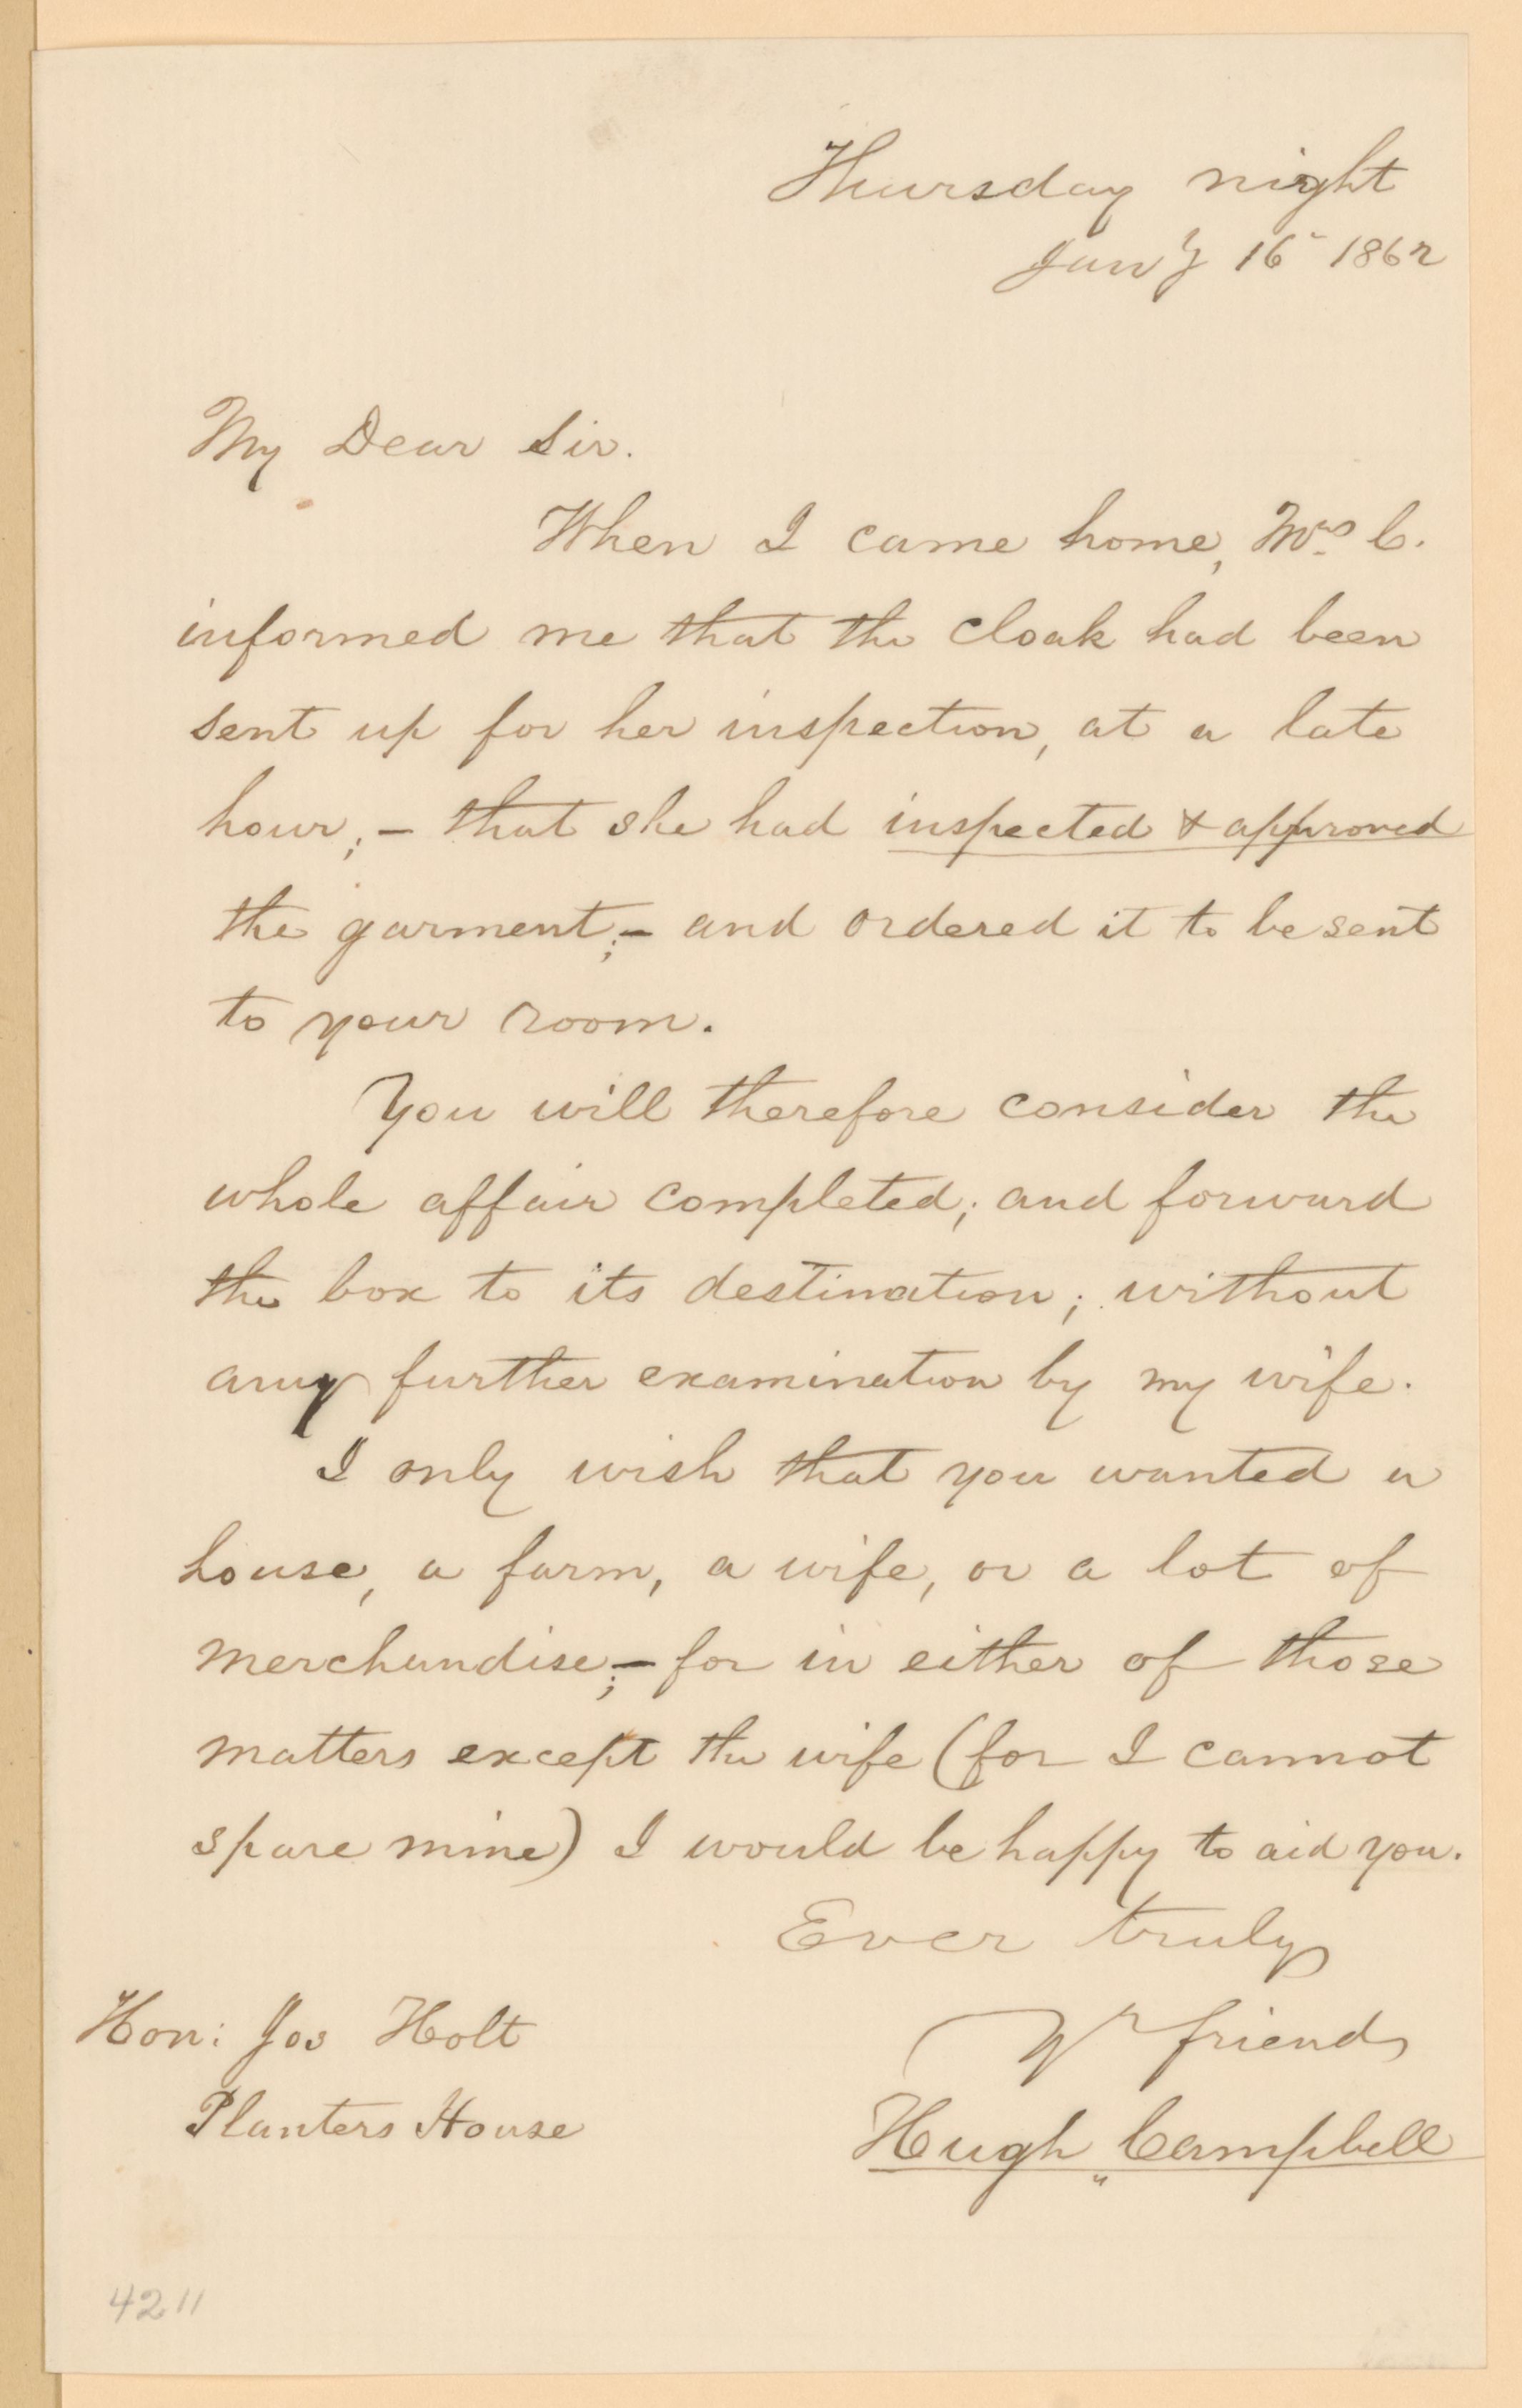 Thursday night
Jan'y 16 1862
My Dear Sir.
When I came home, Mrs C.
informed me that the cloak had been
sent up for her inspection, at a late
hour; – that she had inspected & approved
the garment; – and ordered it to be sent
to your room.
You will therefore consider the
whole affair completed; and forward
the box to its destination; without
any further examination by my wife.
I only wish that you wanted a
house, a farm, a wife, or a lot of
merchandise; – for in either of those
matters except the wife (for I cannot
spare mine) I would be happy to aid you.
Ever truly
Yr friend
Hugh Campbell
Hon: Jos Holt
Planters House
4211